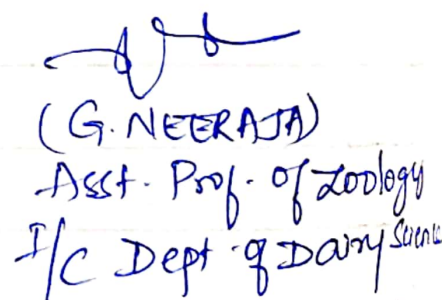 (G. NEERAJA)
Asst. Prof. of Zoology
I/C Dept. of Dairy Science